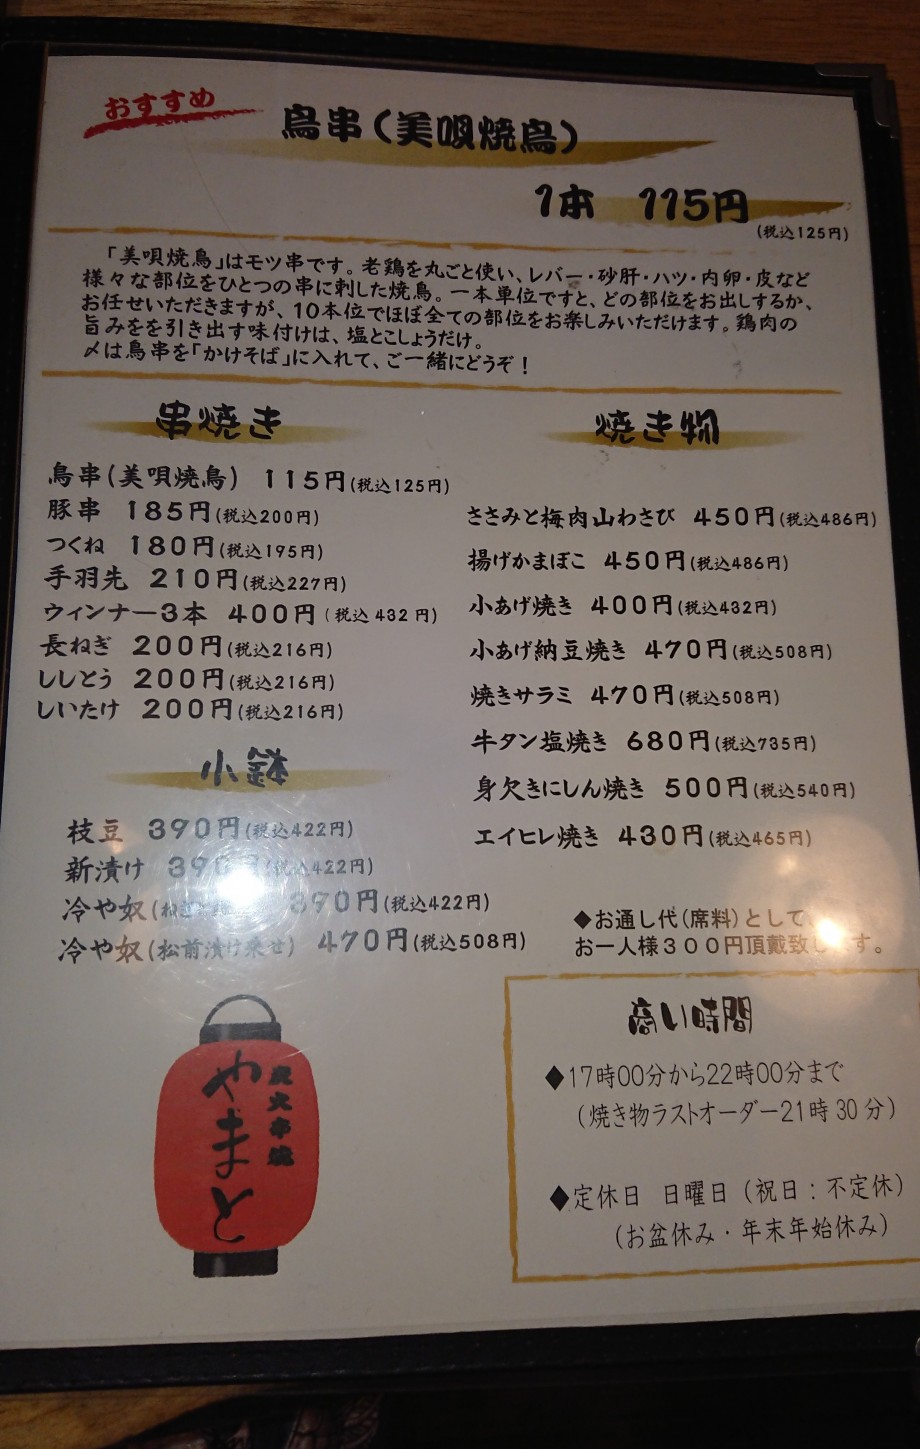 おすすめ
鳥串(美唄焼鳥)
1本 115円
(税込125円)
「美唄焼鳥」はモツ串です。老鶏を丸ごと使い、レバー・砂肝・ハツ・内卵・皮など
様々な部位をひとつの串に刺した焼鳥。一本単位ですと、どの部位をお出しするか、
お任せいただきますが、10本位でほぼ全ての部位をお楽しみいただけます。鶏肉の
旨みをを引き出す味付けは、塩とこしょうだけ。
〆は鳥串を「かけそば」に入れて、ご一緒にどうぞ！
串焼き
鳥串(美唄焼鳥) 115円(税込125円)
豚串 185円(税込200円)
つくね 180円(税込195円)
手羽先 210円(税込227円)
ウィンナー3本 400円(税込432円)
長ねぎ 200円(税込216円)
ししとう 200円(税込216円)
しいたけ 200円(税込216円)
小鉢
枝豆 390円(税込422円)
新漬け 390円(税込422円)
冷や奴( 390円(税込422円)
冷や奴(松前漬け乗せ) 470円(税込508円)
焼き物
ささみと梅肉山わさび 450円(税込486円)
揚げかまぼこ 450円(税込486円)
小あげ焼き 400円(税込432円)
小あげ納豆焼き 470円(税込508円)
焼きサラミ 470円(税込508円)
牛タン塩焼き 680円(税込735円)
身欠きにしん焼き 500円(税込540円)
エイヒレ焼き 430円(税込465円)
◆お通し代(席料)として、
お一人様300円頂戴致します。
商い時間
◆17時00分から22時00分まで
(焼き物ラストオーダー21時30分)
◆定休日 日曜日(祝日:不定休)
(お盆休み・年末年始休み)
炭火串焼
やまと